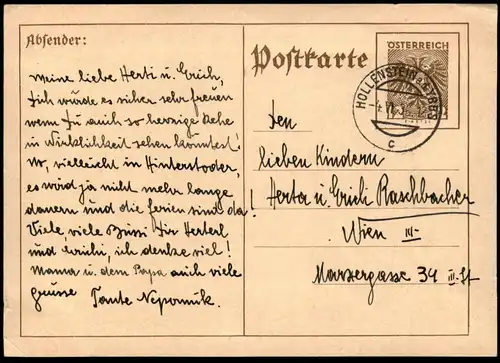 Absender:
Meine liebe Herti u. Erich,
ich würde es sicher sehr freuen
wenn Du auch so herzige Rehe
in Wirklichkeit sehen könntest!
No, vielleicht in Hinterstoder,
es wird ja nicht mehr lange
dauern und die Ferien sind da!
Viele, viele Bussi Dir Herterl
und Erichi, ich denke viel!
Mama u. dem Papa auch viele
Grüsse Tante Nepomuk.
Postkarte
ÖSTERREICH
HOLLENSTEIN a.d. YBBS
c
Den
lieben Kindern
Herta u. Erich Raschbacher
Wien III
Marxergasse 34 III. St